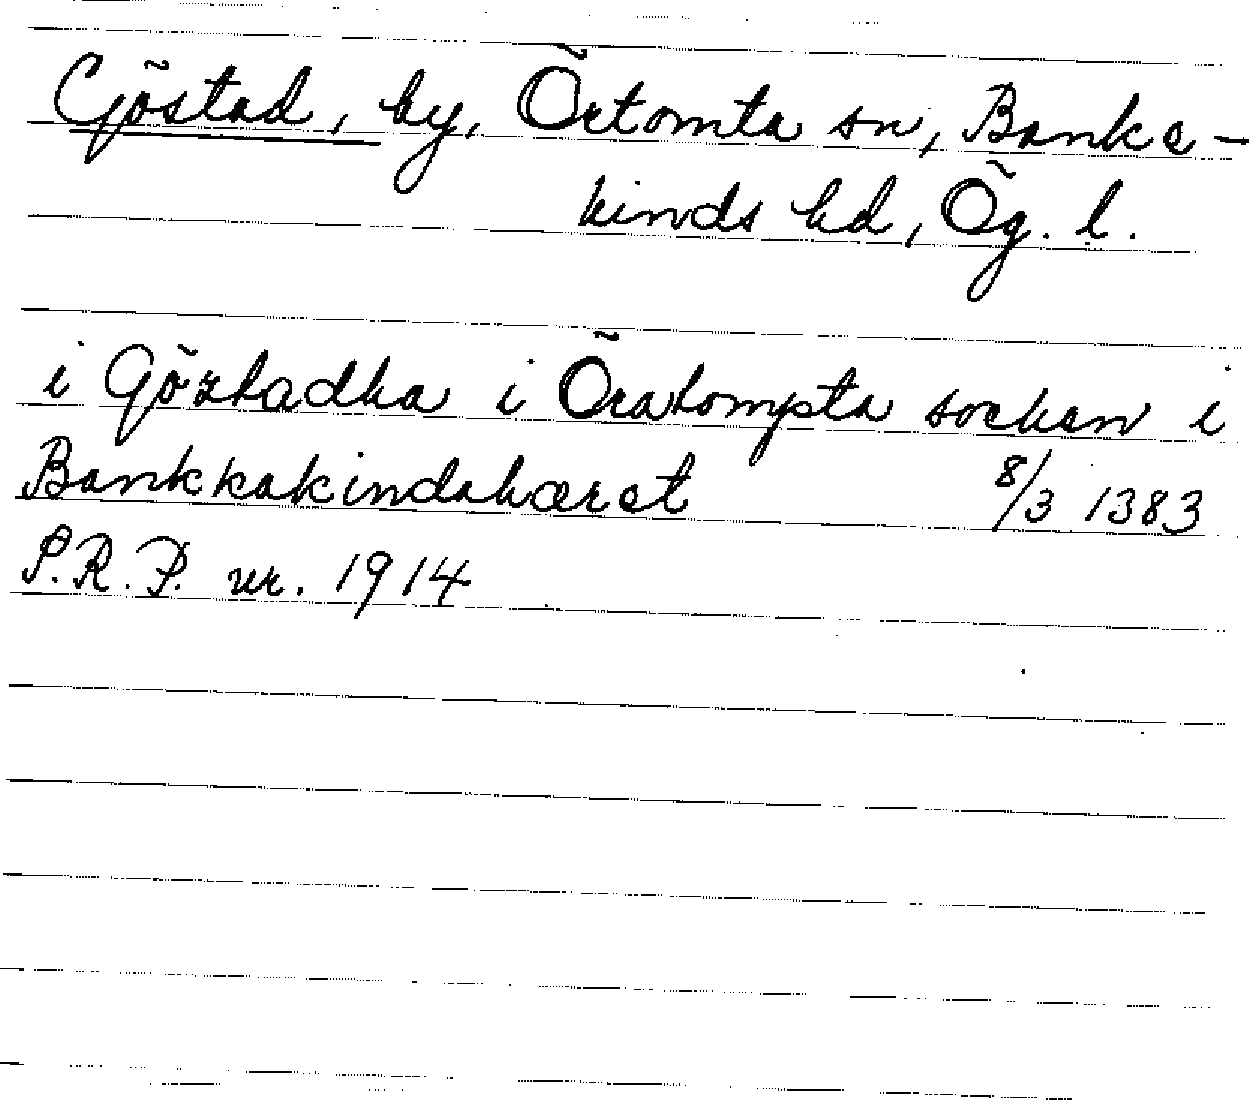 Göstad, by, Örtomta sn, Banke-
kinds hd, Ög. l.
i Gözstadha i Öratompta sokan i
Bankkakindahæret 8/3 1383
S.R.P. nr. 1914